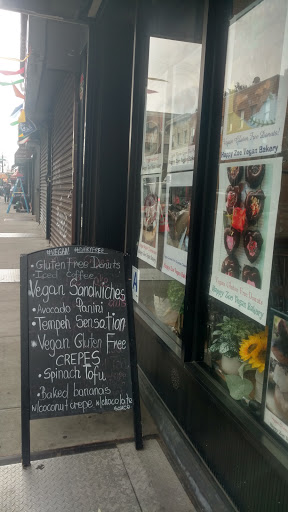 #VEGAN #DAIRY-FREE
• Gluten Free Donuts
Iced Coffee
Vegan Sandwiches
• Avocado Panini
• Tempeh Sensation
• Vegan Gluten Free
CREPES
• Spinach Tofu
• Baked bananas
w/coconut crepe w/chocolate
sauce
Happy Zoe Vegan Bakery
Happy Zoe Vegan Bakery